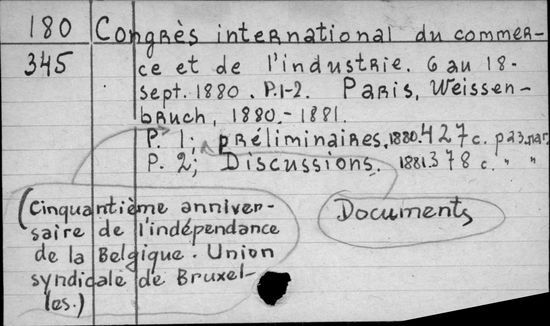 180 Congrès international du commer-
345 ce et de l'industrie. 6 au 18.
sept. 1880. P.1-2. Paris, Weissen-
bruch, 1880.-1881.
P. 1; préliminaires, 1880. 427 c.
P. 2; Discussions. 1881. 378 c. " "
(Cinquantième anniver-
saire de l'indépendance
de la Belgique. Union
syndicale de Bruxel-
les.)
Documents